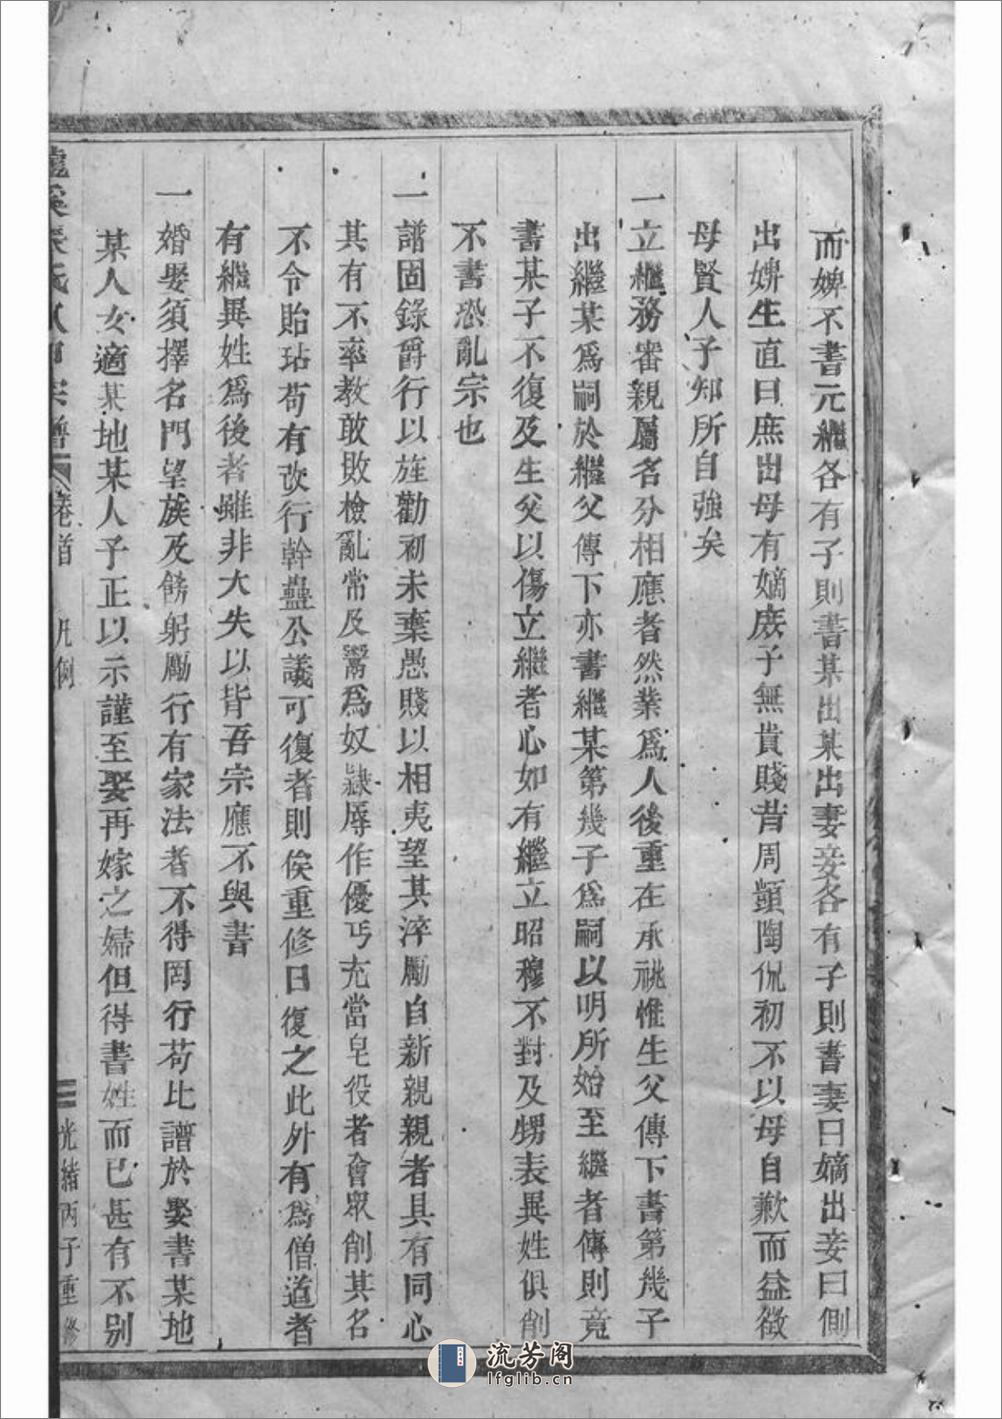 而婢不書元繼各有子則書某出某出妻妾各有子則書妻曰嫡出妾曰側
出婢生直曰庶出母有嫡庶子無貴賤昔周顗陶侃初不以母自歉而益徵
母賢人子知所自強矣
一立繼務審親屬名分相應者然業為人後重在承祧惟生父傳下書第幾子
出繼某為嗣於繼父傳下亦書繼某第幾子為嗣以明所始至繼者傳則竟
書某子不復及生父以傷立繼者心如有繼立昭穆不對及甥表異姓俱削
不書恐亂宗也
一譜固錄爵行以旌勸初未棄愚賤以相夷望其淬勵自新親親者具有同心
其有不率教敢敗檢亂常及鬻為奴隸辱作優丐充當皂役者會眾削其名
不令貽玷苟有改行幹蠱公議可復者則俟重修日復之此外有為僧道者
有繼異姓為後者雖非大失以皆吾宗應不與書
一婚娶須擇名門望族及飭躬勵行有家法者不得罔行苟比譜於娶書某地
某人女適某地某人子正以示謹至娶再嫁之婦但得書姓而已甚有不别
張氏 宗譜 卷首 凡例 二 光緒丙子重修
流芳阁
lfglib.cn